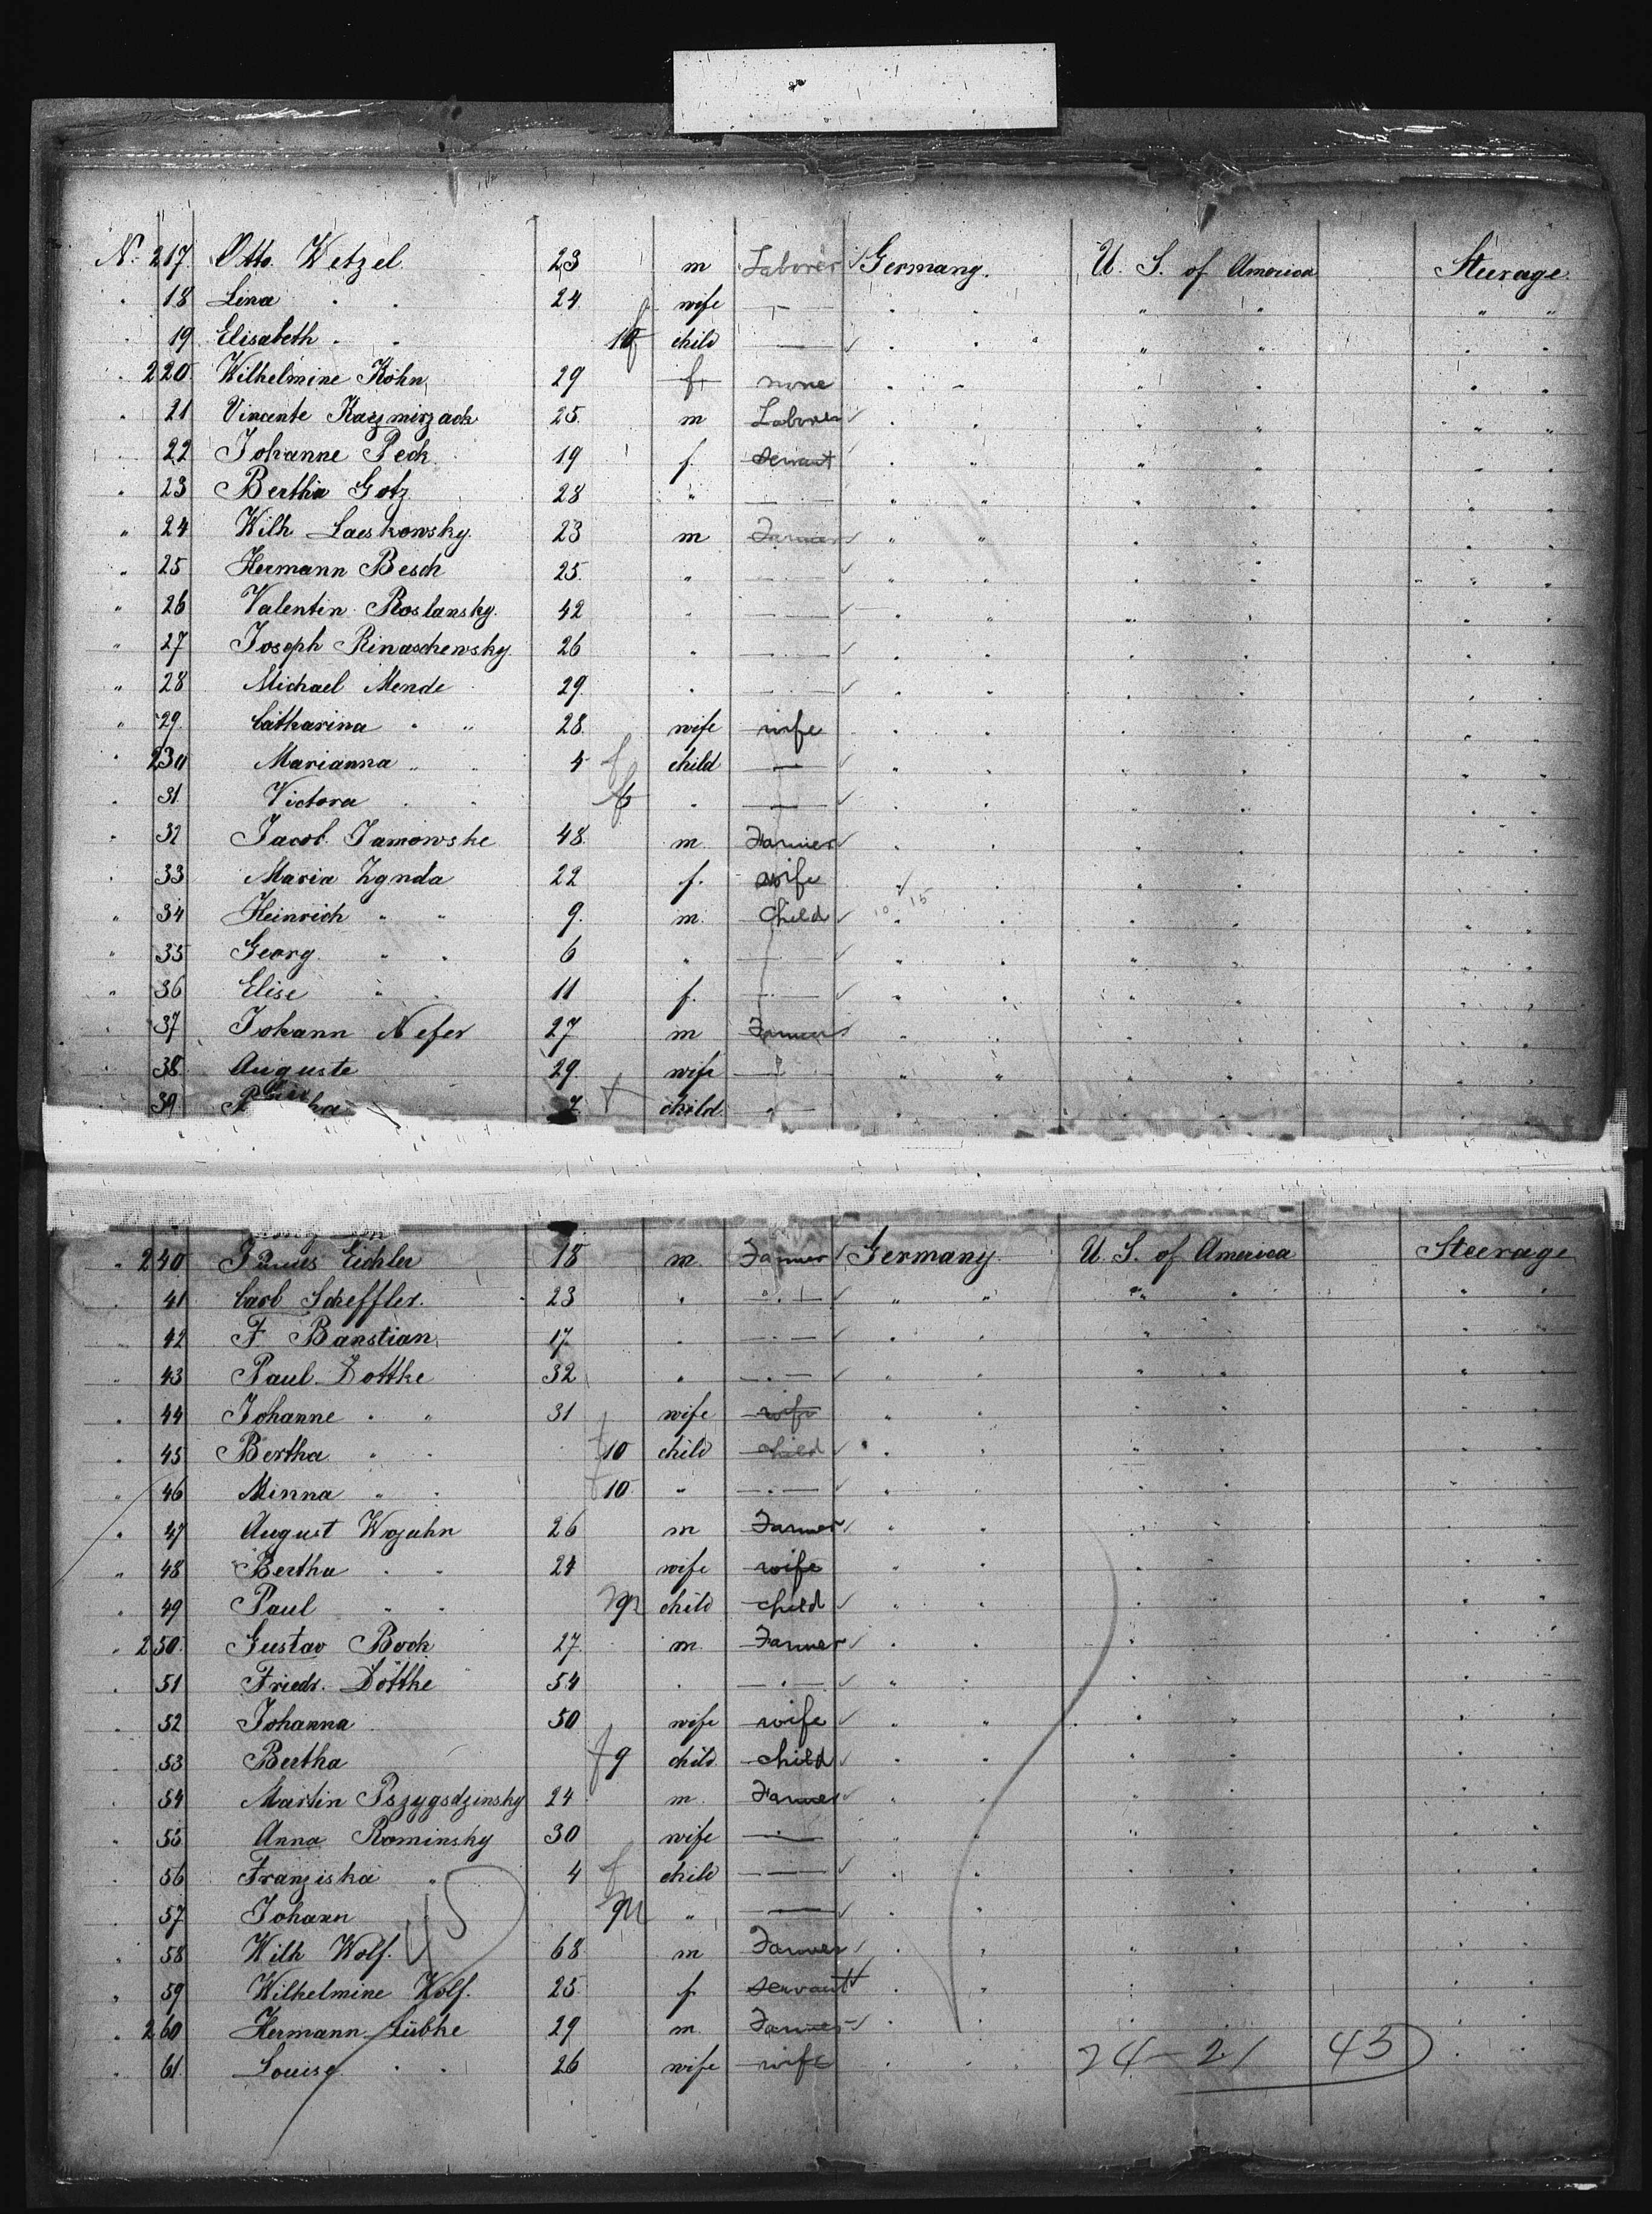 N. 217 Otto Wetzel 23 m Laborer Germany. U. S. of America Steerage
" 18 Lina " " 24 wife — " " " " " "
" 19 Elisabeth " " child — " " " " " "
" 220 Wilhelmine Köhn 29 f none " " " " " "
" 21 Vincente Kazmirzack 25 m Laborer " " " " " "
" 22 Johanne Peck 19 f. Servant " " " " " "
" 23 Bertha Gotz 28 " — " " " " " "
" 24 Wilh. Laeskowsky. 23 m Farmer " " " " " "
" 25 Hermann Besch 25. " — " " " " " "
" 26 Valentin Roslansky. 42 " — " " " " " "
" 27 Joseph Rinaschewsky 26 " — " " " " " "
" 28 Michael Mende 29. " — " " " " " "
" 29. Catharina " " 28. wife wife " " " " " "
" 230 Marianna " " 4 f child — " " " " " "
" 31 Victora " " " — " " " " " "
" 32 Jacob Jamowske 48. m. Farmer " " " " " "
" 33 Maria Zynda 22 f. wife " " " " " "
" 34 Heinrich " " 9. m. Child 10 15 " " " " " "
" 35 Georg " " 6 " — " " " " " "
" 36 Elise " " 11 f. — " " " " " "
" 37 Johann Nefer 27 m Farmer " " " " " "
" 38 Auguste 29. wife — " " " " " "
" 39 child — " " " " " "
" 240 Eichler 18 m. Farmer Germany. U. S. of America Steerage
" 41 Carl Scheffler. 23 " — " " " " " "
" 42 F. Banstian 17. " — " " " " " "
" 43 Paul Dottke 32 " — " " " " " "
" 44 Johanne " " 31 wife wife " " " " " "
" 45 Bertha " " f 10 child child " " " " " "
" 46 Minna " " f 10 " — " " " " " "
" 47 August Wojahn 26 m Farmer " " " " " "
" 48 Bertha " " 24 wife wife " " " " " "
" 49 Paul " " child child " " " " " "
" 250. Gustav Bock 27. m. Farmer " " " " " "
" 51 Friedr. Dottke 54 " — " " " " " "
" 52 Johanna 50 wife wife " " " " " "
" 53 Bertha f 9 child child " " " " " "
" 54 Martin Pszygsdzinsky 24 m. Farmer " " " " " "
" 55 Anna Rominsky 30 wife — " " " " " "
" 56 Franziska " 4 f child — " " " " " "
" 57 Johann " — " " " " " "
" 58 Wilh Wolf. 68 m Farmer " " " " " "
" 59 Wilhelmine Wolf. 25 f servant " " " " " "
" 260 Hermann Lübke 29 m. Farmer " " " " " "
" 61 Louise " " 26 wife wife " " " 24 – 21 43 " "